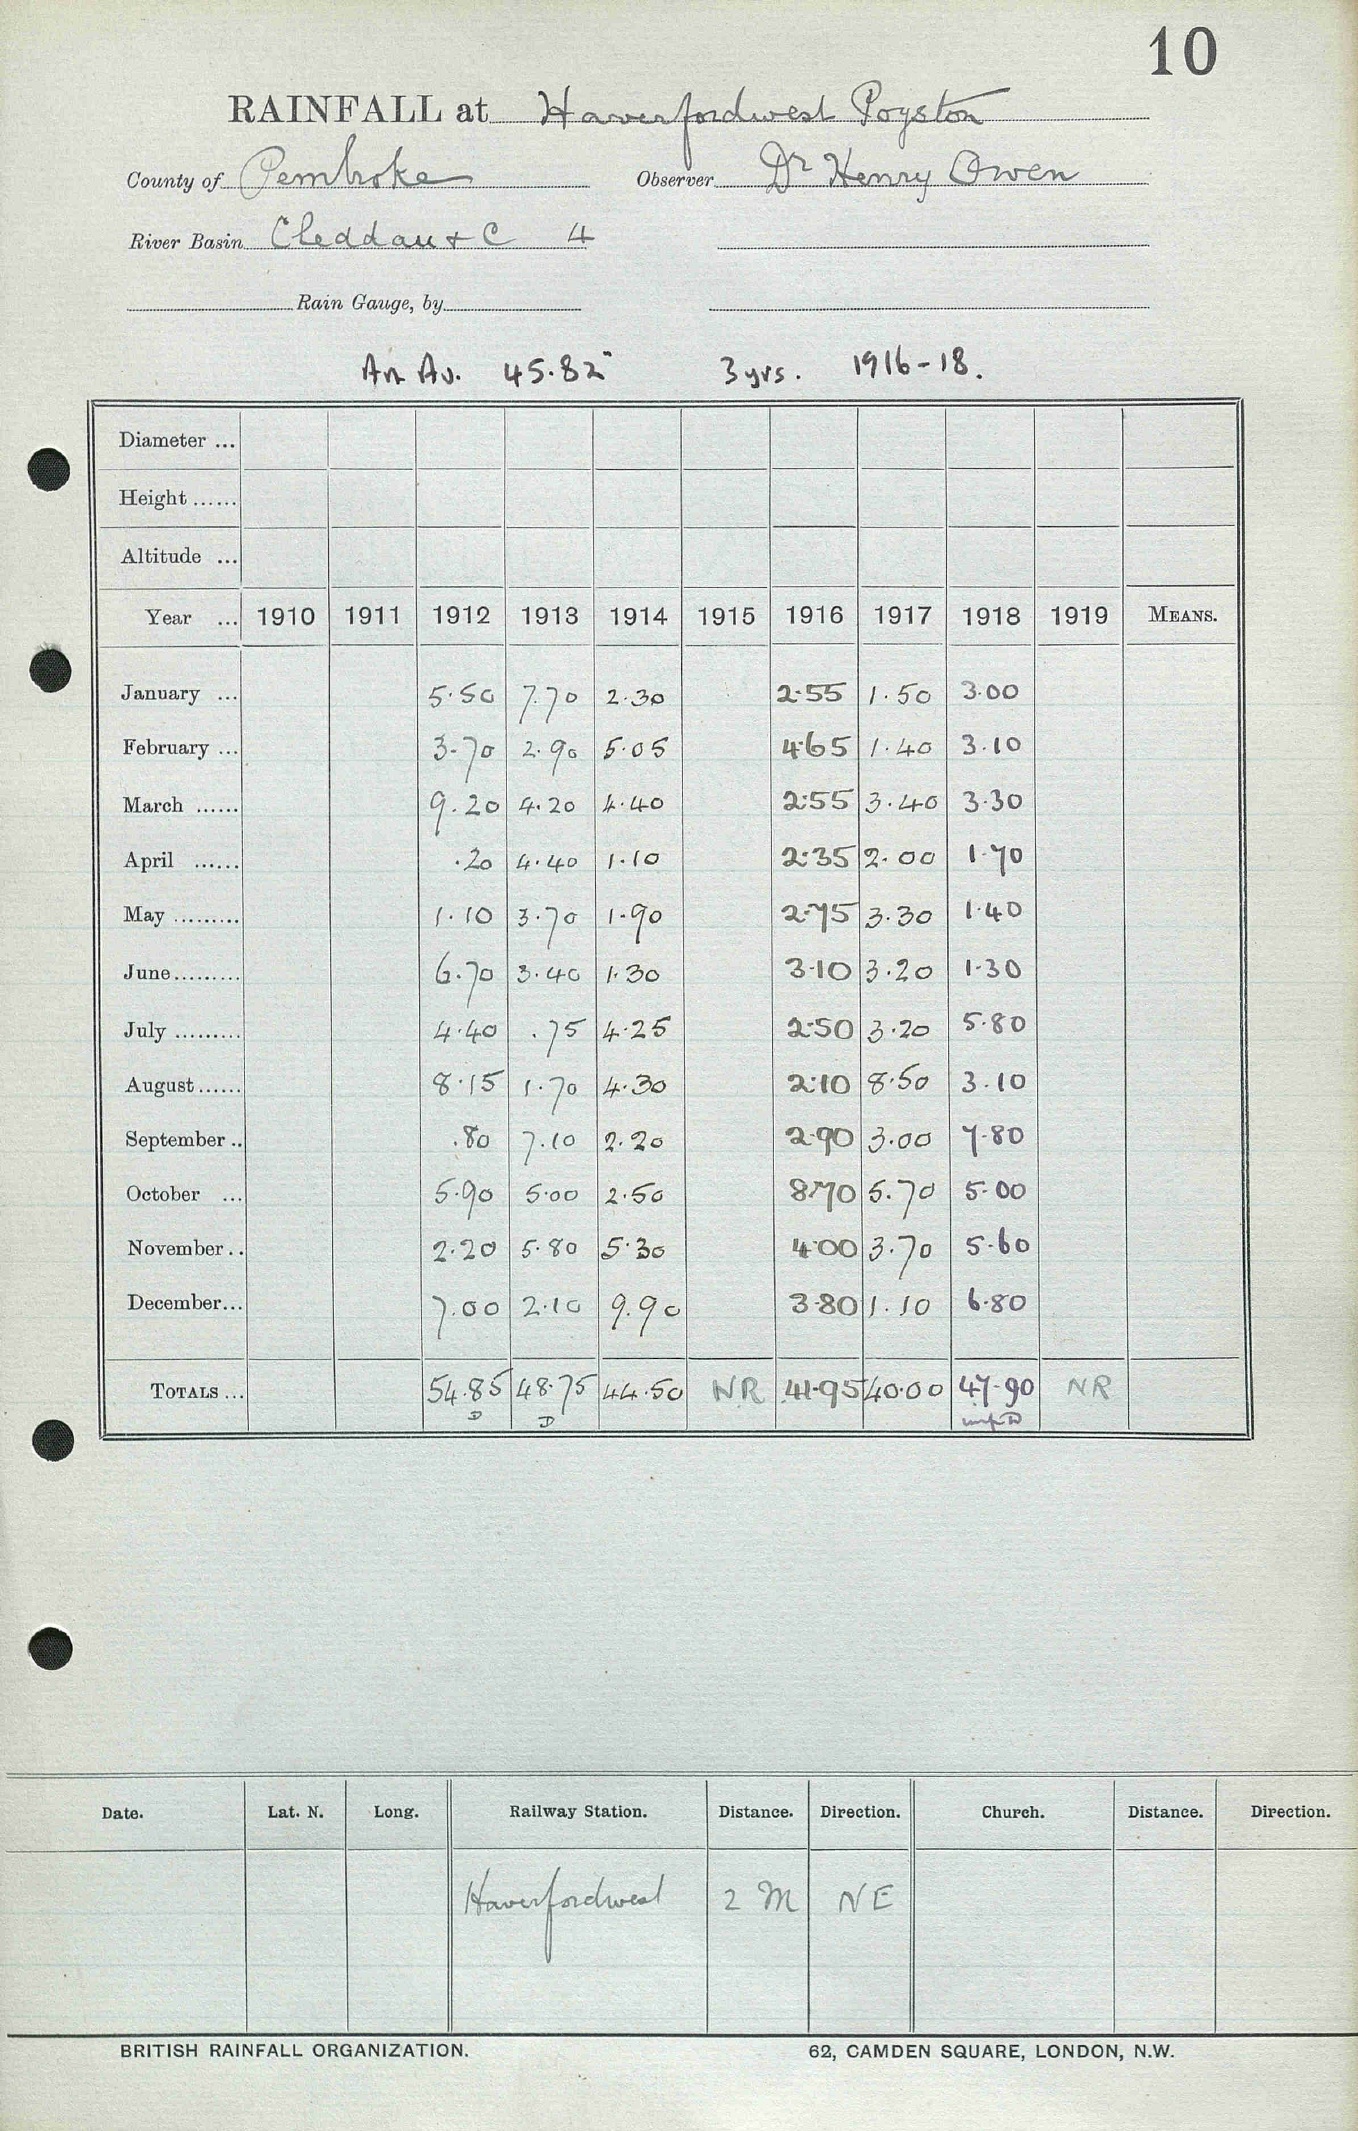 10
RAINFALL at Haverfordwest Poyston
County of Pembroke Observer Dr Henry Owen
River Basin Cleddau & C 4
Rain Gauge, by
An Av. 45.82" 3 yrs. 1916-18.
Diameter ...
Height ......
Altitude ...
Year ... 1910 1911 1912 1913 1914 1915 1916 1917 1918 1919 MEANS.
January ... 5.50 7.70 2.30 2.55 1.50 3.00
February ... 3.70 2.90 5.05 4.65 1.40 3.10
March ...... 9.20 4.20 4.40 2.55 3.40 3.30
April ...... .20 4.40 1.10 2.35 2.00 1.70
May ......... 1.10 3.70 1.90 2.75 3.30 1.40
June......... 6.70 3.40 1.30 3.10 3.20 1.30
July ......... 4.40 .75 4.25 2.50 3.20 5.80
August...... 8.15 1.70 4.30 2.10 8.50 3.10
September .. .80 7.10 2.20 2.90 3.00 7.80
October ... 5.90 5.00 2.50 8.70 5.70 5.00
November .. 2.20 5.80 5.30 4.00 3.70 5.60
December... 7.00 2.10 9.90 3.80 1.10 6.80
TOTALS ... 54.85 48.75 44.50 NR 41.95 40.00 47.90 NR
D D
Date. Lat. N. Long. Railway Station. Distance. Direction. Church. Distance. Direction.
Haverfordwest 2 M NE
BRITISH RAINFALL ORGANIZATION. 62, CAMDEN SQUARE, LONDON, N.W.